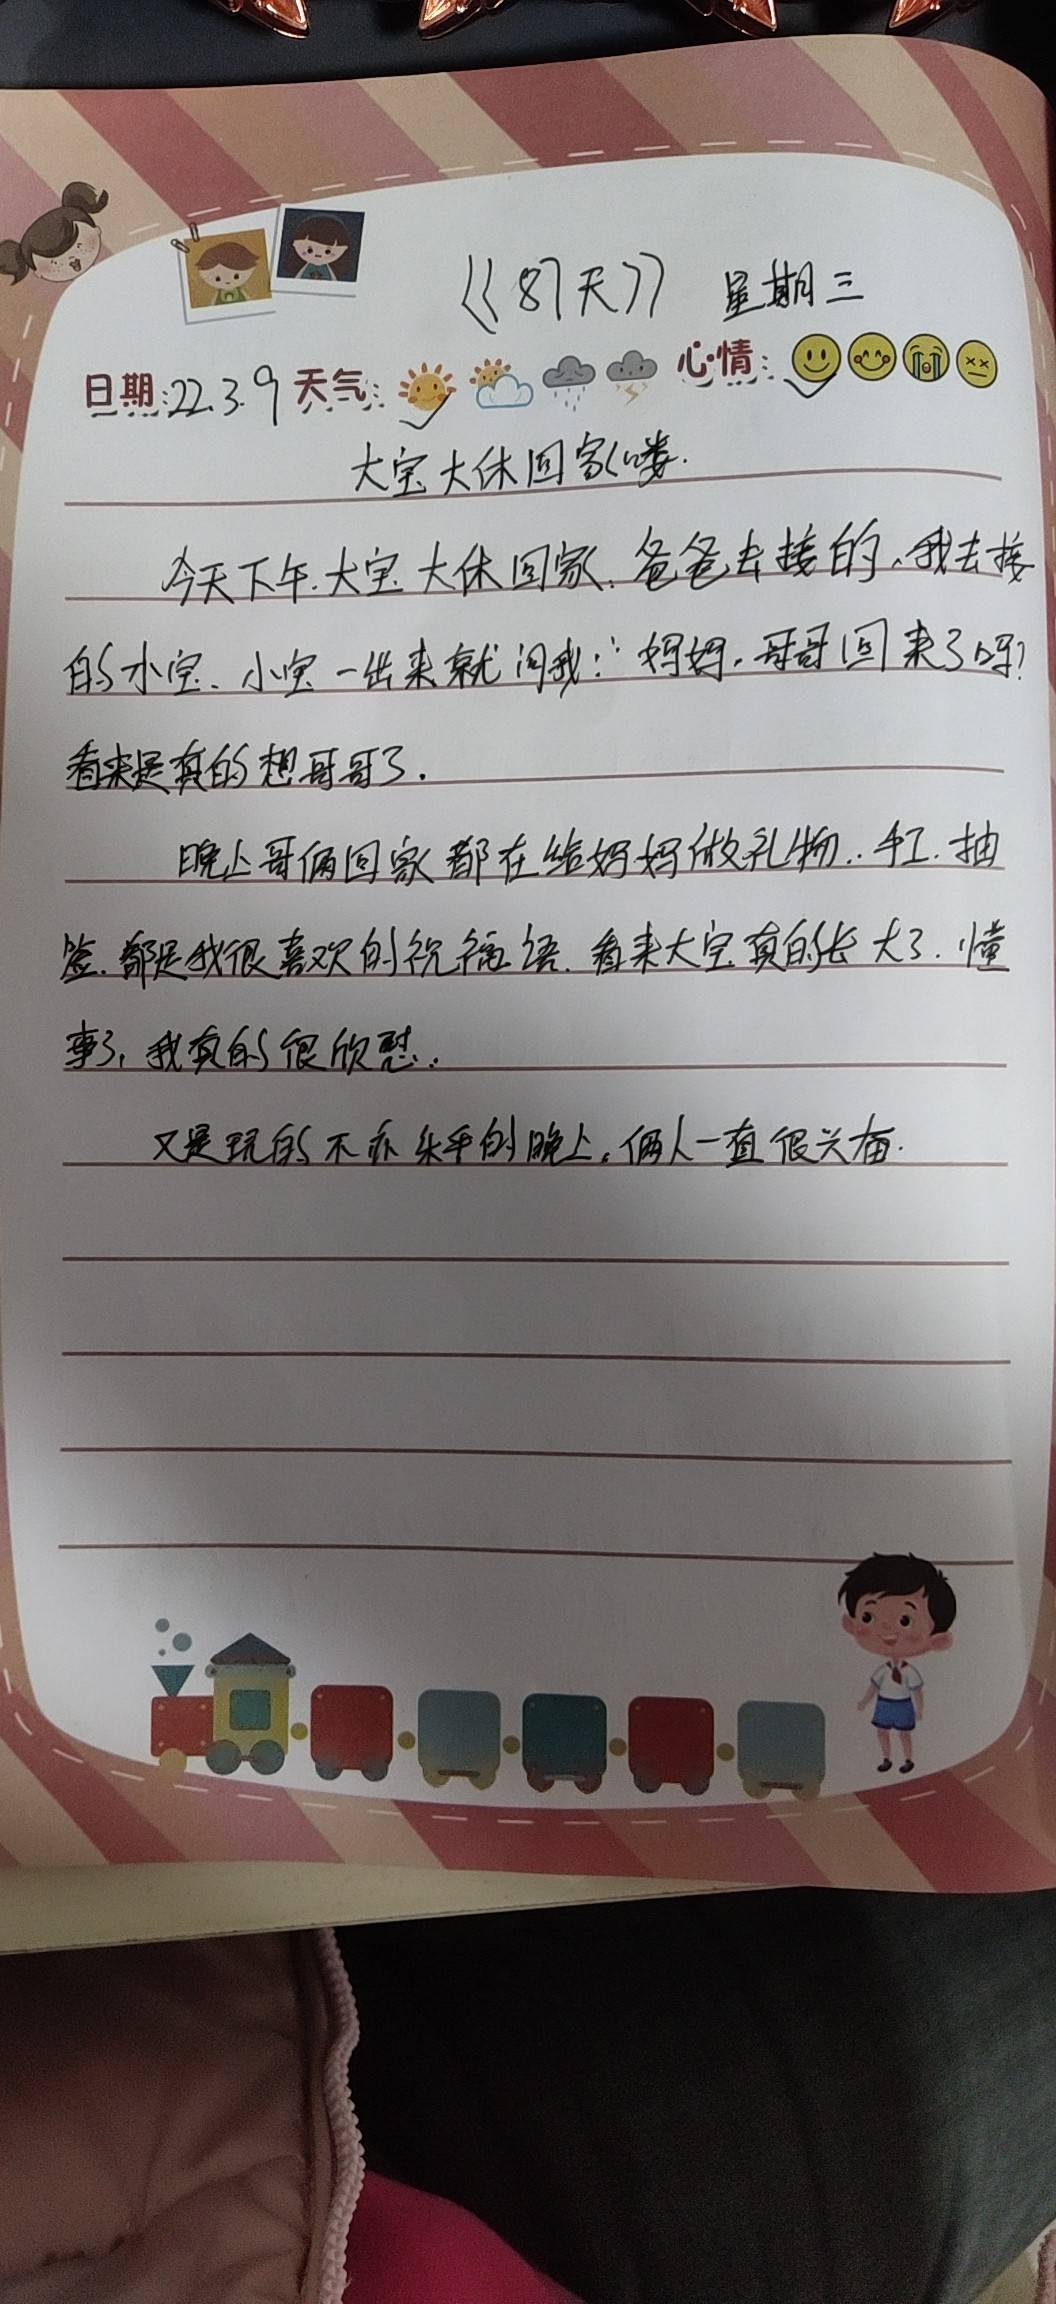 《87天》 星期三
日期:22.3.9 天气: 心情:
大宝大休回家喽.
今天下午.大宝大休回家.爸爸去接的,我去接
的小宝、小宝一出来就问我:“妈妈,哥哥回来了吗?
看来是真的想哥哥了.
晚上哥俩回家都在给妈妈做礼物..手工.抽
签.都是我很喜欢的祝福语.看来大宝真的长大了.懂
事了,我真的很欣慰.
又是玩的不亦乐乎的晚上,俩人一直很兴奋.